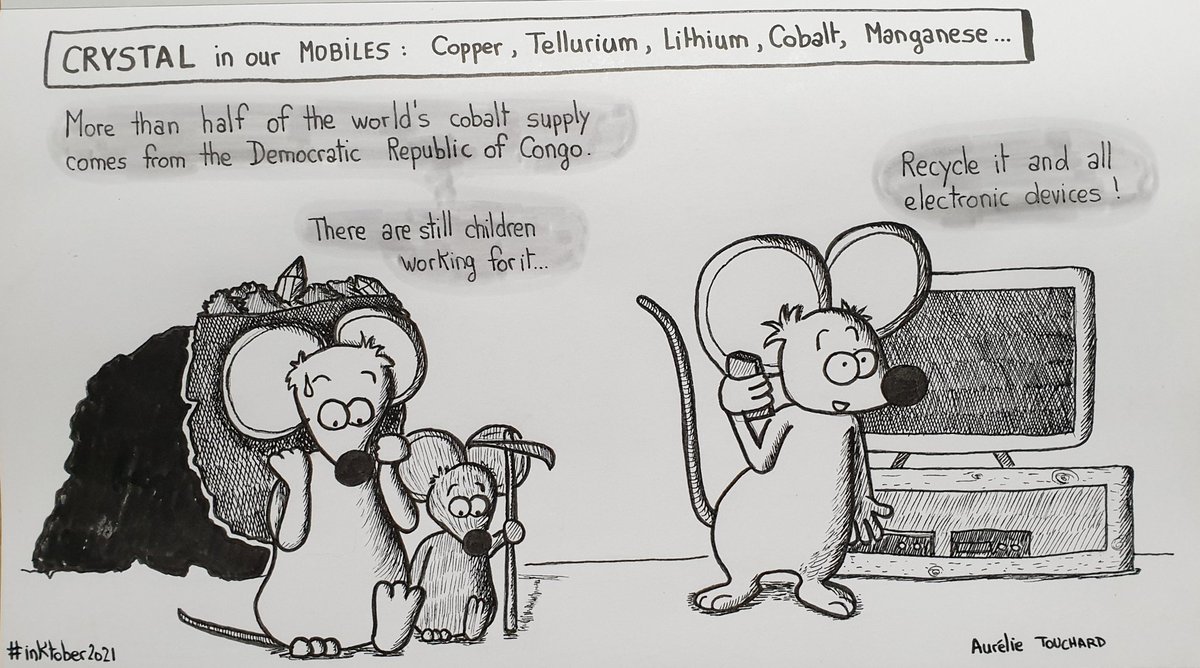 CRYSTAL in our MOBILES : Copper, Tellurium, Lithium, Cobalt, Manganese...
More than half of the world's cobalt supply
comes from the Democratic Republic of Congo.
There are still children
working for it...
Recycle it and all
electronic devices !
#inktober2021
Aurélie TOUCHARD